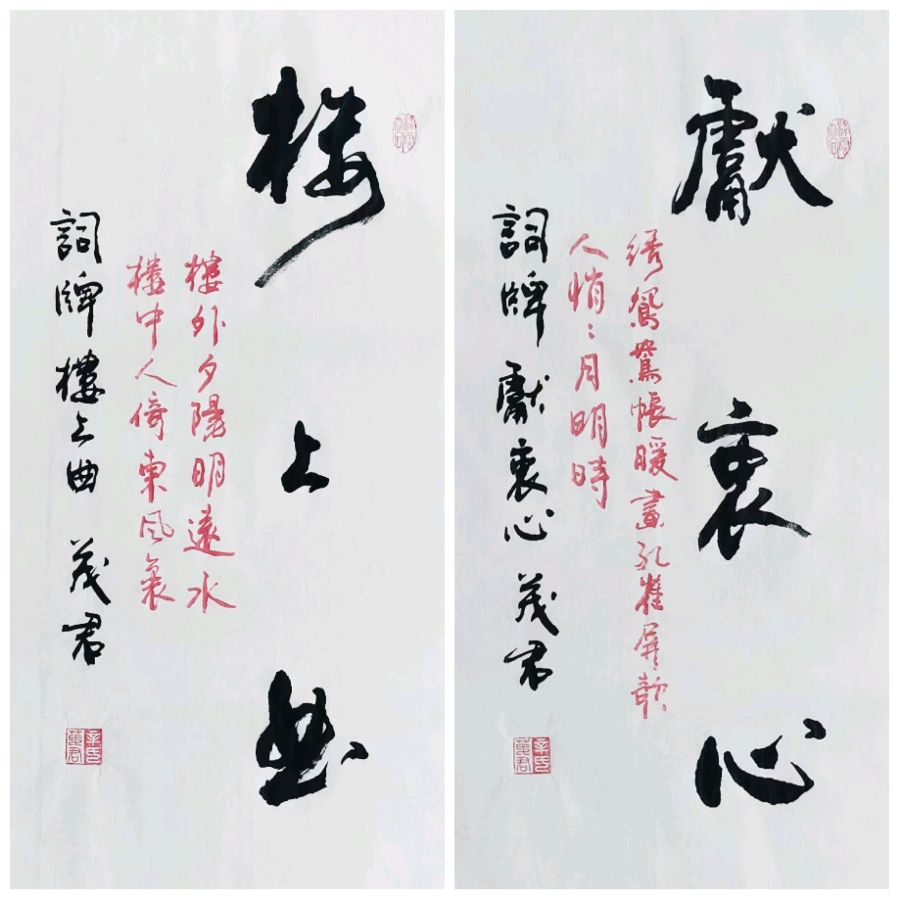 楼上曲
樓外夕陽明遠水
樓中人倚東風裏
詞牌樓上曲 茂君
辛氏
茂君
獻衷心
绣鴛鴦帳暖畫孔雀屏欹
人悄〻月明時
詞牌獻衷心 茂君
辛氏
茂君